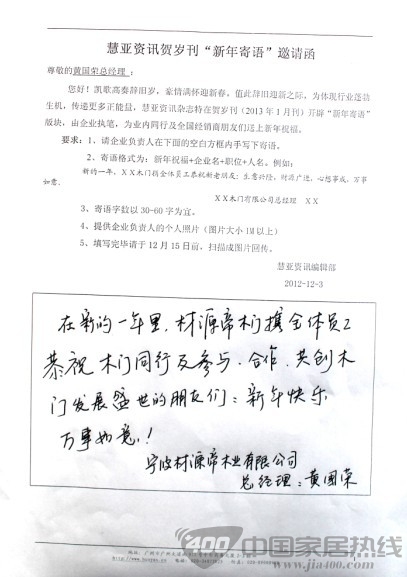 慧亚资讯贺岁刊“新年寄语”邀请函
尊敬的黄国荣总经理：
您好！凯歌高奏辞旧岁，豪情满怀迎新春，值此辞旧迎新之际，为体现行业蓬勃
生机，传递更多正能量，慧亚资讯杂志特在贺岁刊（2013年1月刊）开辟“新年寄语”
版块，由企业执笔，为业内同行及全国经销商朋友们送上新年祝福。
要求：1、请企业负责人在下面的空白方框内手写下寄语。
2、寄语格式为：新年祝福+企业名+职位+人名。例如：
新的一年，XX木门携全体员工恭祝新老朋友：生意兴隆，财源广进，心想事成，万事
如意。
XX木门有限公司总经理 XX
3、寄语字数以30-60字为宜。
4、提供企业负责人的个人照片（图片大小1M以上）
5、填写完毕请于12月15日前，扫描成图片回传。
慧亚资讯编辑部
2012-12-3
在新的一年里，材源帝木门携全体员工
恭祝木门同行及参与、合作、共创木
门发展盛世的朋友们：新年快乐
万事如意！
宁波材源帝木业有限公司
总经理：黄国荣
400 中国家居热线
www.jia400.com